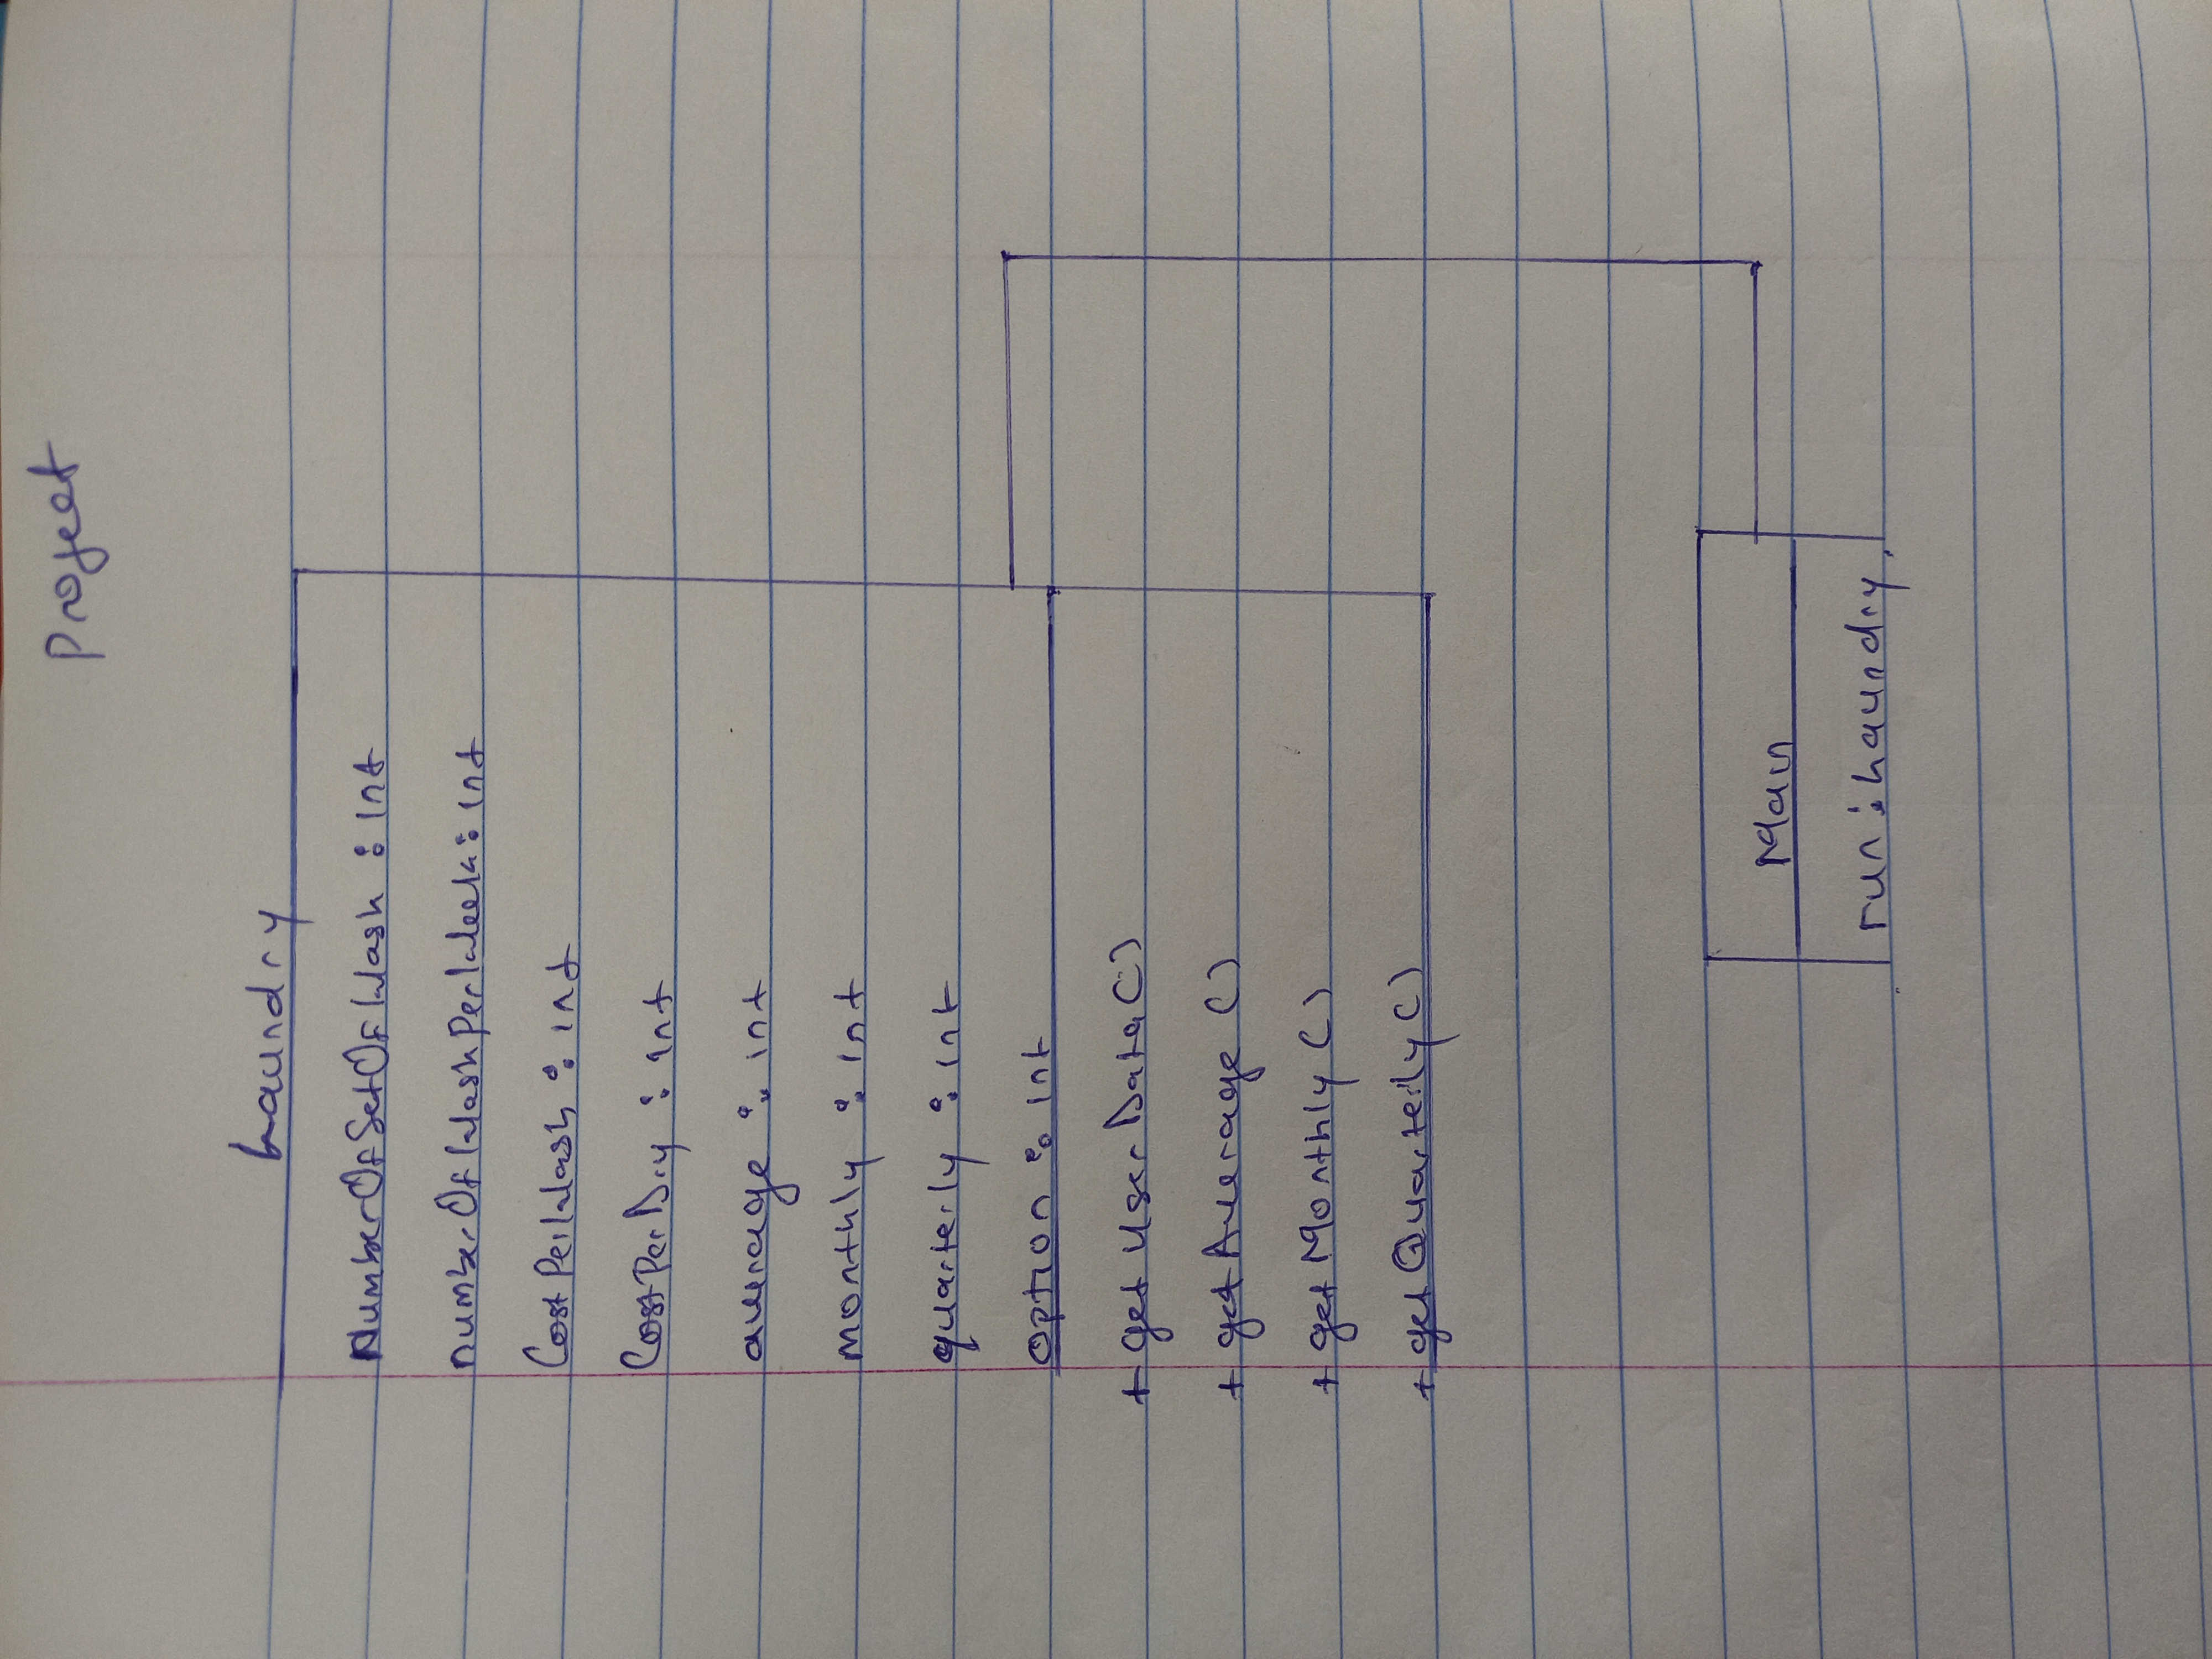 Project
Laundry
NumberOfSetOfWash : int
numberOfWashPerWeek : int
CostPerWash : int
CostPerDry : int
average : int
monthly : int
quarterly : int
option : int
+ getUserData()
+ getAverage()
+ getMonthly()
+ getQuarterly()
Main
run : Laundry